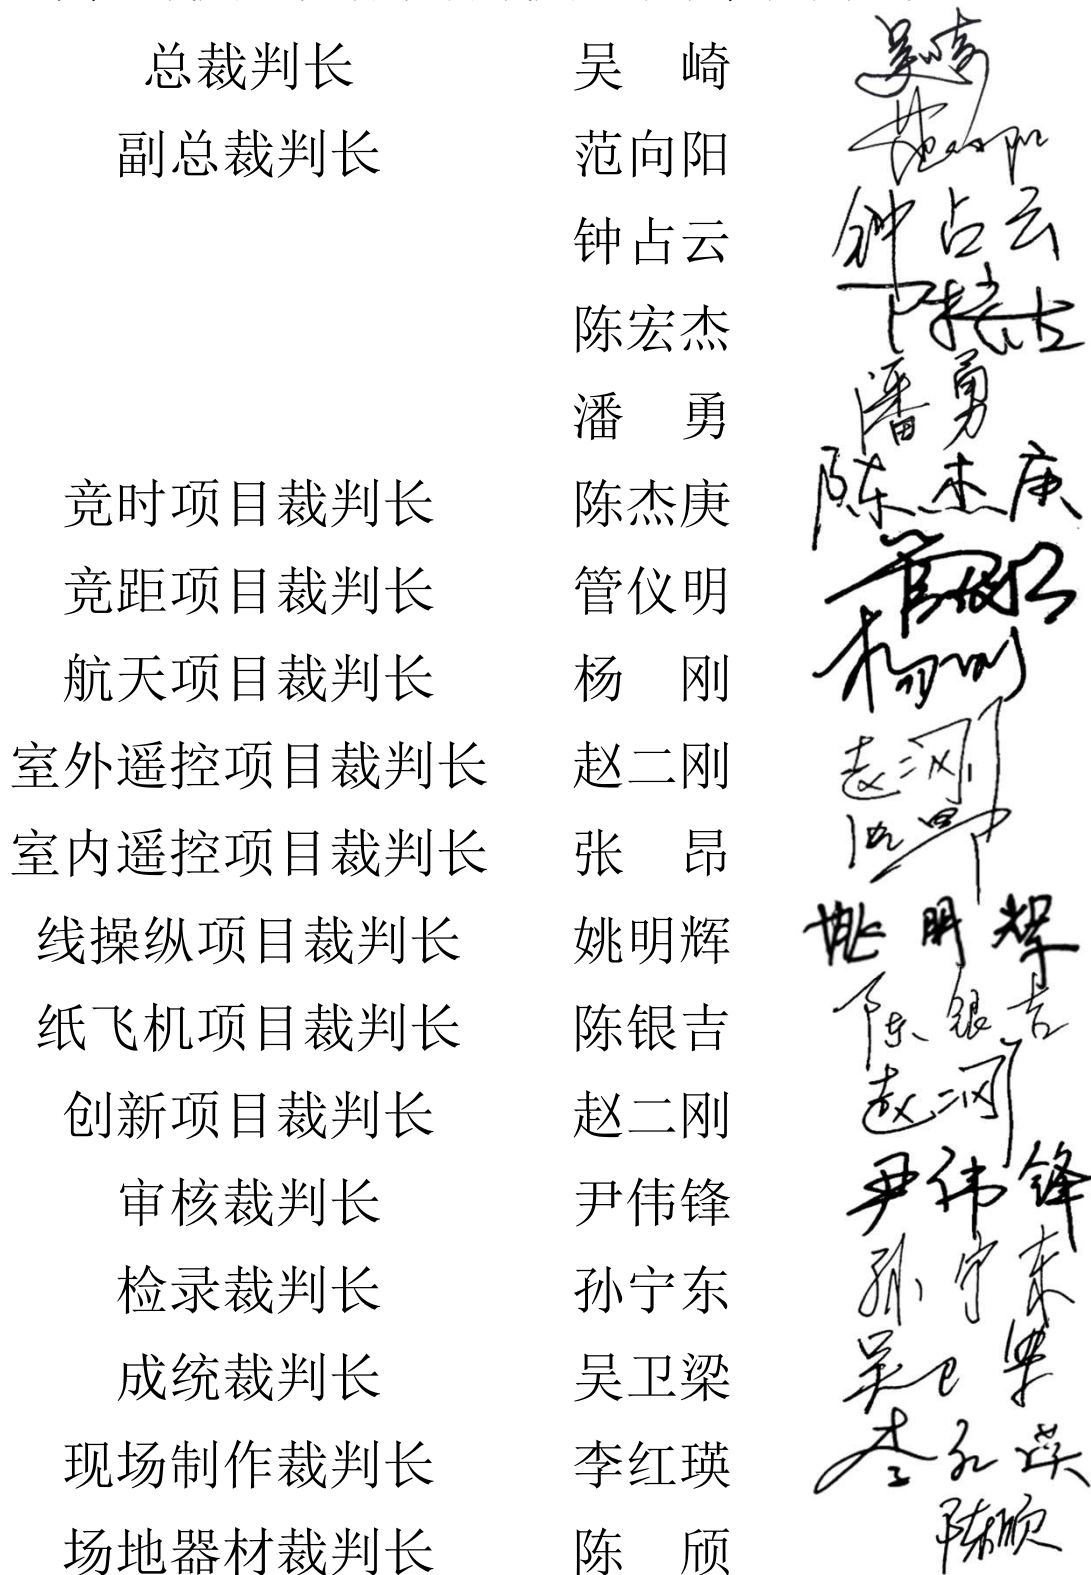 总裁判长 吴 崎 吴崎
副总裁判长 范向阳 范向阳
钟占云 钟占云
陈宏杰
潘 勇 潘勇
竞时项目裁判长 陈杰庚 陈杰庚
竞距项目裁判长 管仪明 管仪明
航天项目裁判长 杨 刚 杨刚
室外遥控项目裁判长 赵二刚 赵二刚
室内遥控项目裁判长 张 昂 张昂
线操纵项目裁判长 姚明辉 姚明辉
纸飞机项目裁判长 陈银吉 陈银吉
创新项目裁判长 赵二刚 赵二刚
审核裁判长 尹伟锋 尹伟锋
检录裁判长 孙宁东 孙宁东
成统裁判长 吴卫梁 吴卫梁
现场制作裁判长 李红瑛 李红瑛
场地器材裁判长 陈 颀 陈颀